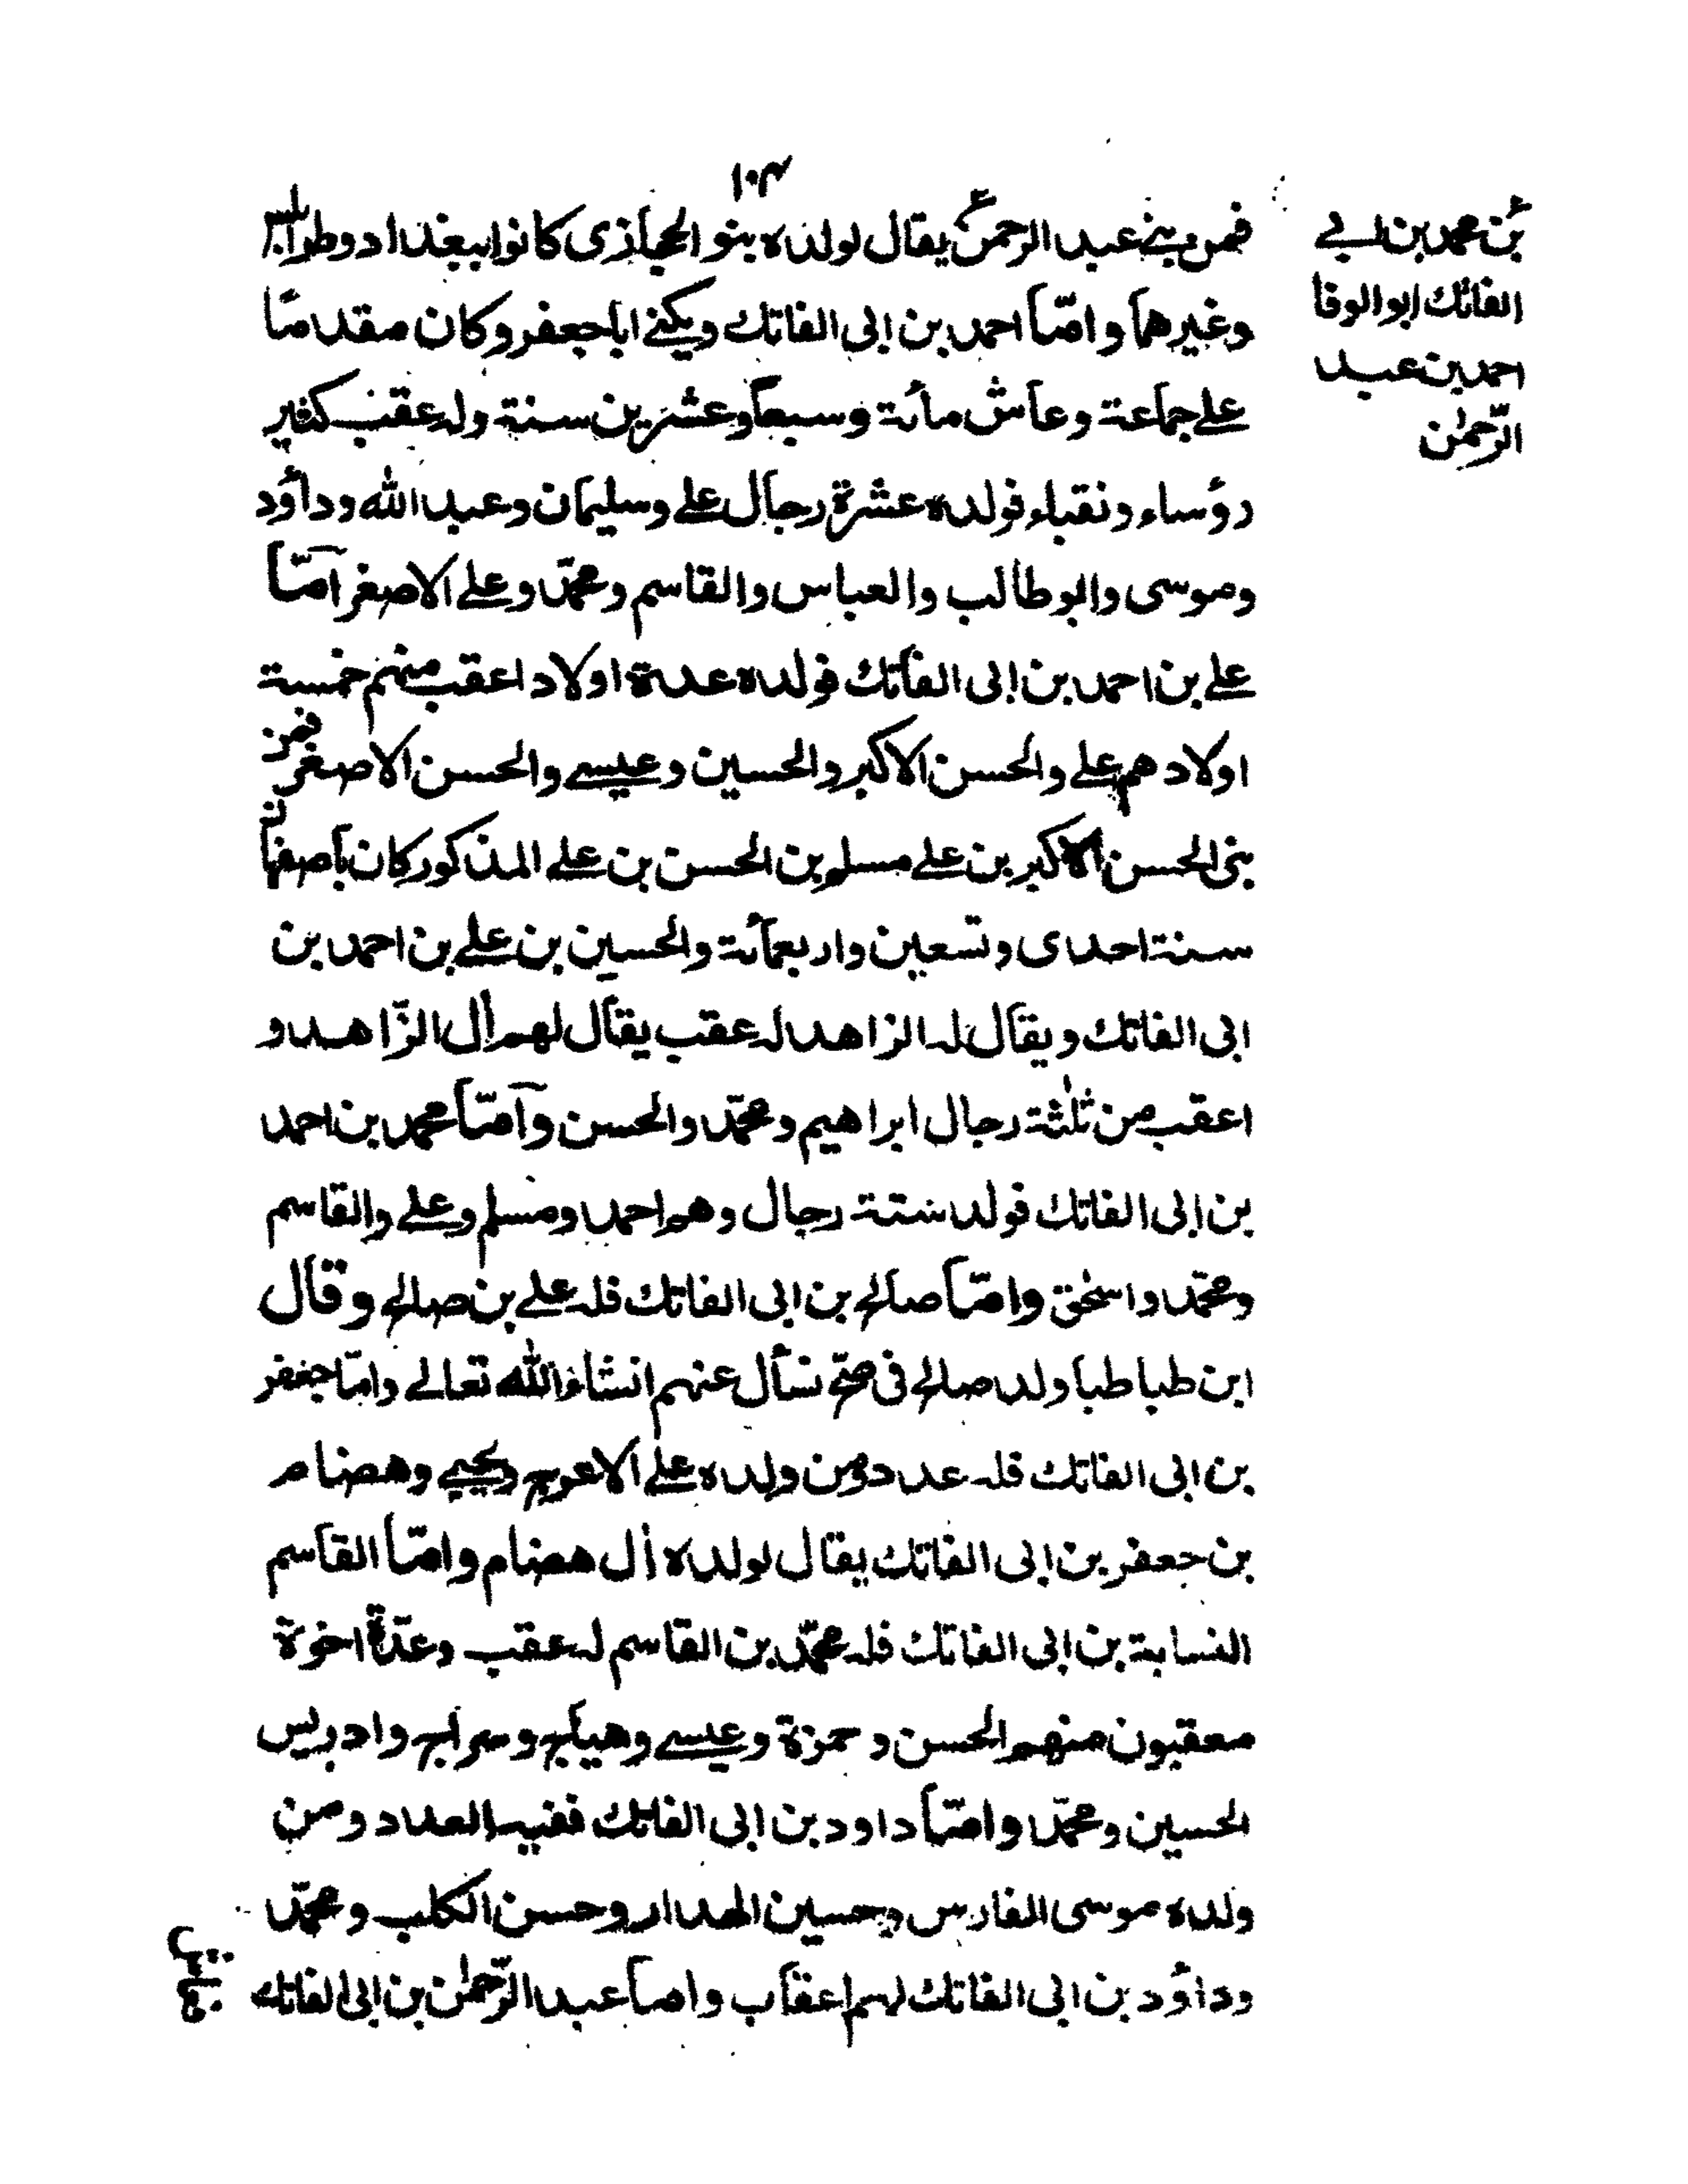 ١٠٣
فمن بني عبد الرحمن يقال لولده بنو الحجازى كانوا ببغداد وطرابلس
وغيرهما وامّا احمد بن ابى الفاتك ويكنے اباجعفر وكان مقدمًا
علے جماعة وعاش مائة وسبعًا وعشرين سنة وله عقب كثير
رؤساء ونقباء فولده عشرة رجال علے وسليمان وعبد الله وداؤد
وموسى وابو طالب والعباس والقاسم ومحمّد وعلے الاصغر امّا
علے بن احمد بن ابى الفاتك فولده عدة اولاد اعقب منهم خمسة
اولاد هم علے والحسن الاكبر والحسين وعيسے والحسن الاصغر فمن
بنى الحسن الاكبر بن علے مسلم بن الحسن بن علے المذكور كان باصفهان
سنة احدى وتسعين واربعمائة والحسين بن علے بن احمد بن
ابى الفاتك ويقال له الزاهد له عقب يقال لهم اٰل الزّاهد و
اعقب من ثلٰثة رجال ابراهيم ومحمّد والحسن وامّا محمد بن احمد
بن ابى الفاتك فولد ستة رجال وهم احمد ومسلم وعلے والقاسم
ومحمّد واسحٰق وامّا صالح بن ابى الفاتك فله علے بن صالح وقال
ابن طباطبا ولد صالح فى صحّ نسأل عنهم انشاء الله تعالے وامّا جعفر
بن ابى الفاتك فله عدد ومن ولده علے الاعرج ويحيے وهضام
بن جعفر بن ابى الفاتك يقال لولده اٰل هضام وامّا القاسم
النسابة بن ابى الفاتك فله محمّد بن القاسم له عقب وعدّة اخوة
معقبون منهم الحسن وحمزة وعيسے وهياج وسراج وادريس
الحسين ومحمّد وامّا داود بن ابى الفاتك ففيه العدد ومن
ولده موسى الفارس وحسين الهدار وحسن الكلب ومحمّد
وداؤد بن ابى الفاتك لهم اعقاب واما عبد الرّحمٰن بن ابى الفاتك
بن محمد بن ابے
الفاتك ابو الوفا
احمد بن عبد
الرّحمٰن